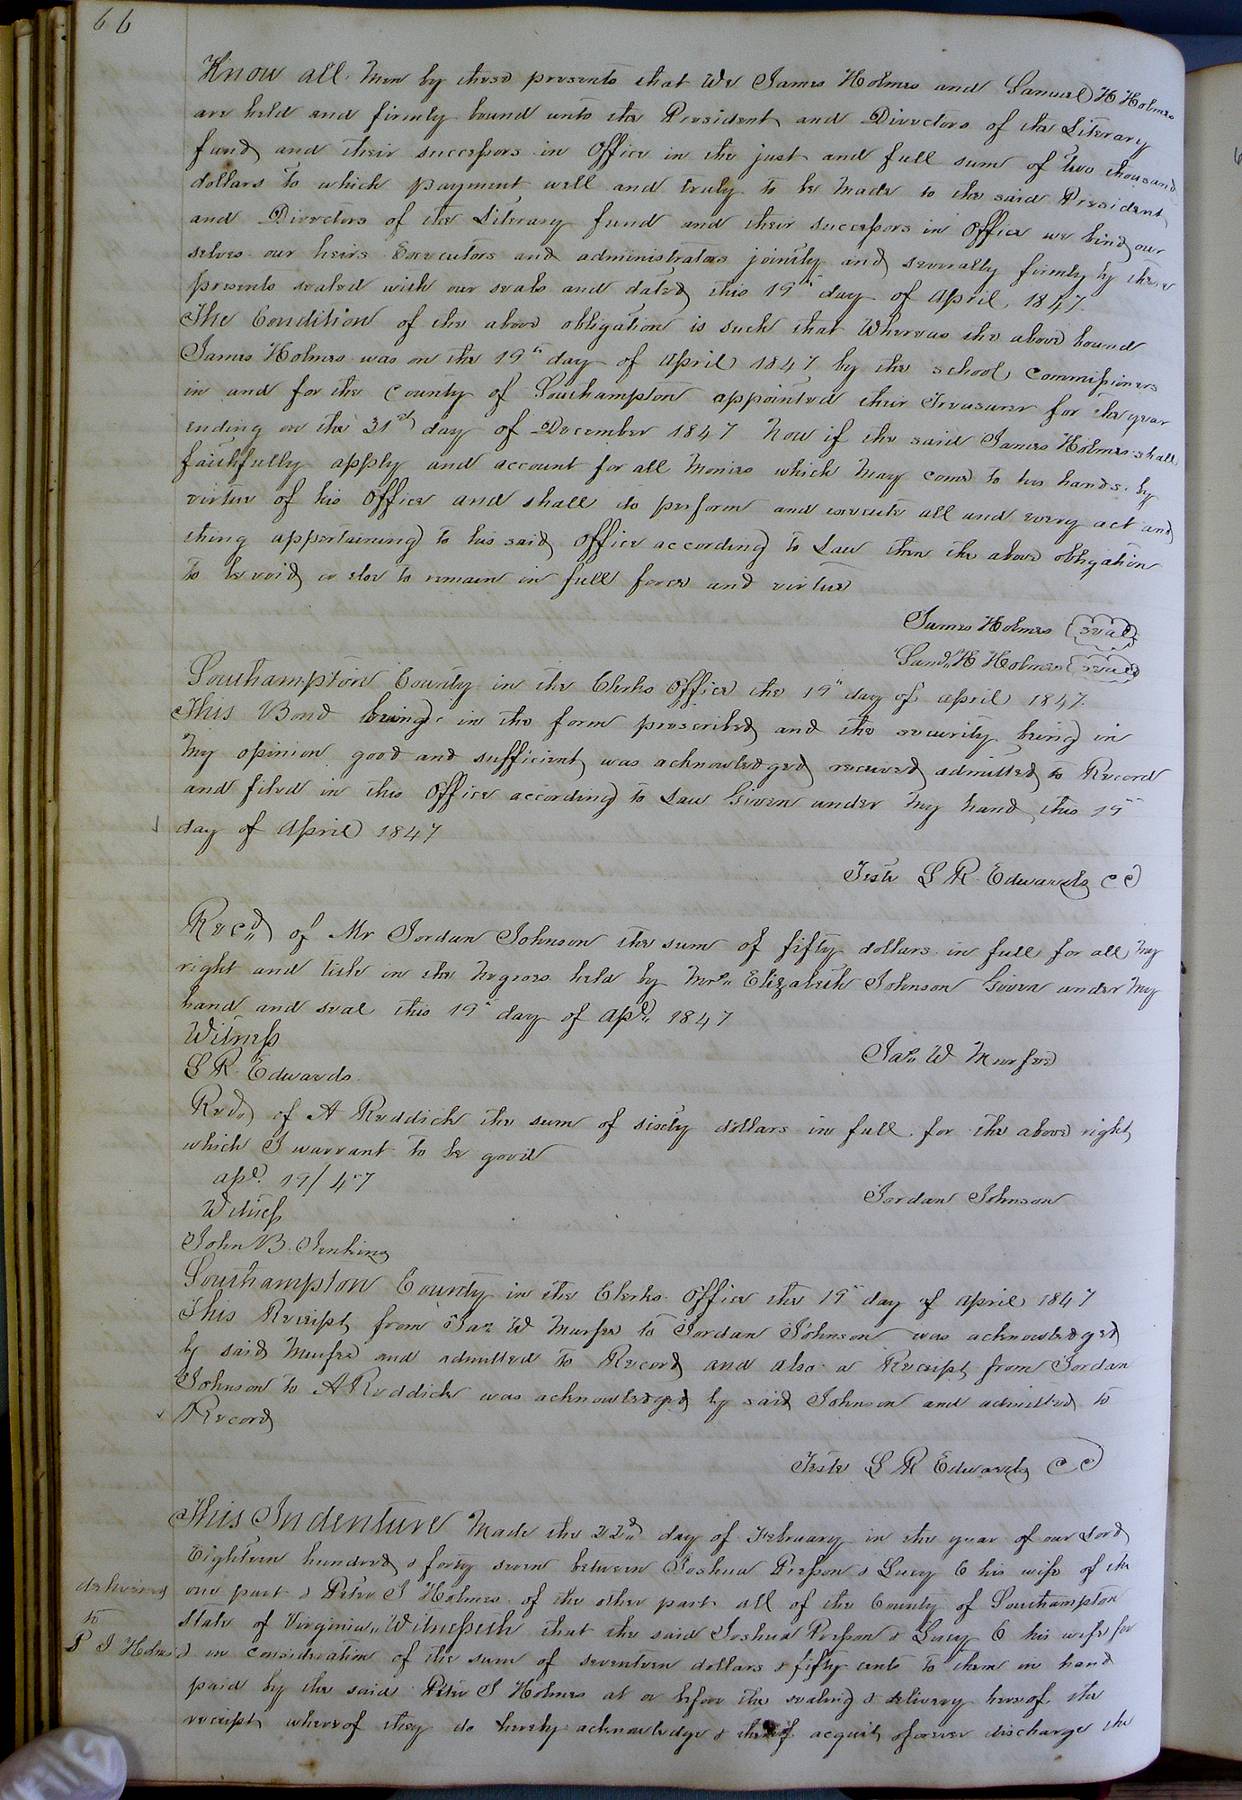 66
Know all men by these presents that We James Holmes and Samuel H Holmes
are held and firmly bound unto the President and Directors of the Literary
fund and their successors in Office in the just and full sum of two thousand
dollars to which payment well and truly to be made to the said President
and Directors of the Literary fund and their successors in Office we bind our
selves our heirs Executors and administrators jointly and severally firmly by these
presents sealed with our seals and dated this 19th day of April 1847.
The Condition of the above obligation is such that Whereas the above bound
James Holmes was on the 19th day of April 1847 by the school commissioners
in and for the County of Southampton appointed their Treasurer for the year
ending on the 31st day of December 1847 Now if the said James Holmes shall
faithfully apply and account for all monies which may come to his hands by
virtue of his Office and shall do perform and execute all and every act and
thing appertaining to his said Office according to Law then the above obligation
to be void or else to remain in full force and virtue
James Holmes (seal)
Saml H Holmes (seal)
Southampton County in the Clerks Office the 19th day of April 1847.
This Bond being in the form prescribed and the security being in
my opinion good and sufficient was acknowledged received admitted to Record
and filed in this Office according to Law Given under my hand this 19th
day of April 1847
Teste L R Edwards CC
Recd of Mr Jordan Johnson the sum of fifty dollars in full for all my
right and title in the negroes held by Mrs Elizabeth Johnson Given under my
hand and seal this 19th day of Apl 1847
Witness
L R Edwards
Jas W Murfee
Recd of A Reddick the sum of sixty dollars in full for the above right
which I warrant to be good
apl 19/47
Jordan Johnson
Witness
John B. Jenkins
Southampton County in the Clerks Office the 19th day of April 1847
This Receipt from Jas W Murfee to Jordan Johnson was acknowledged
by said Murfee and admitted to Record and also a Receipt from Jordan
Johnson to A Reddick was acknowledged by said Johnson and admitted to
Record
Teste L R Edwards CC
This Indenture Made the 22nd day of February in the year of our Lord
Eighteen hundred & forty seven between Joshua Pierson & Lucy C his wife of the
one part & Peter J Holmes of the other part all of the County of Southampton
delivered
to
P J Holmes
State of Virginia Witnesseth that the said Joshua Pierson & Lucy C his wife for
& in consideration of the sum of seventeen dollars & fifty cents to them in hand
paid by the said Peter J Holmes at or before the sealing & delivery hereof the
receipt whereof they do hereby acknowledge & thereof acquit & forever discharge the